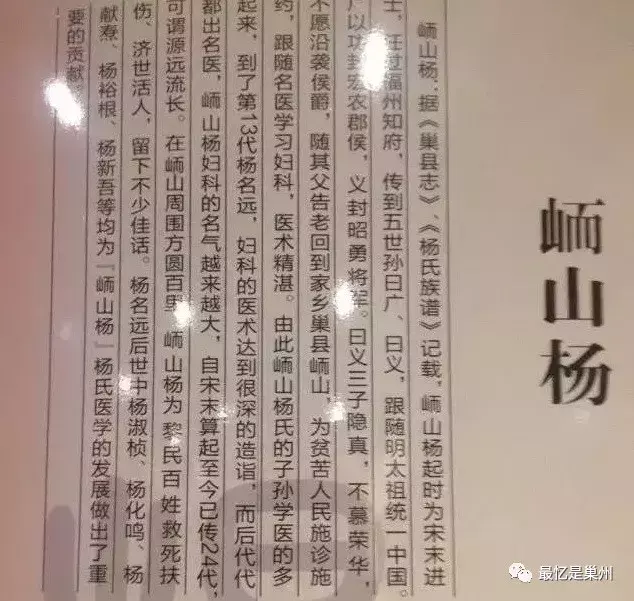 峏山杨
峏山杨：据《巢县志》、《杨氏族谱》记载，峏山杨起时为宋末进
士，任过福州知府，传到五世孙日广、日义，跟随明太祖统一中国。
广以功封宏农郡侯，义封昭勇将军。日义三子隐真，不慕荣华，
不愿沿袭侯爵，随其父告老回到家乡巢县峏山，为贫苦人民施诊施
药，跟随名医学习妇科，医术精湛。由此峏山杨氏的子孙学医的多
起来，到了第13代杨名远，妇科的医术达到很深的造诣，而后代代
都出名医，峏山杨妇科的名气越来越大，自宋末算起至今已传24代，
可谓源远流长。在峏山周围方圆百里，峏山杨为黎民百姓救死扶
伤、济世活人，留下不少佳话。杨名远后世中杨淑桢、杨化鸣、杨
献焘、杨裕根、杨新吾等均为『峏山杨』杨氏医学的发展做出了重
要的贡献
最忆是巢州